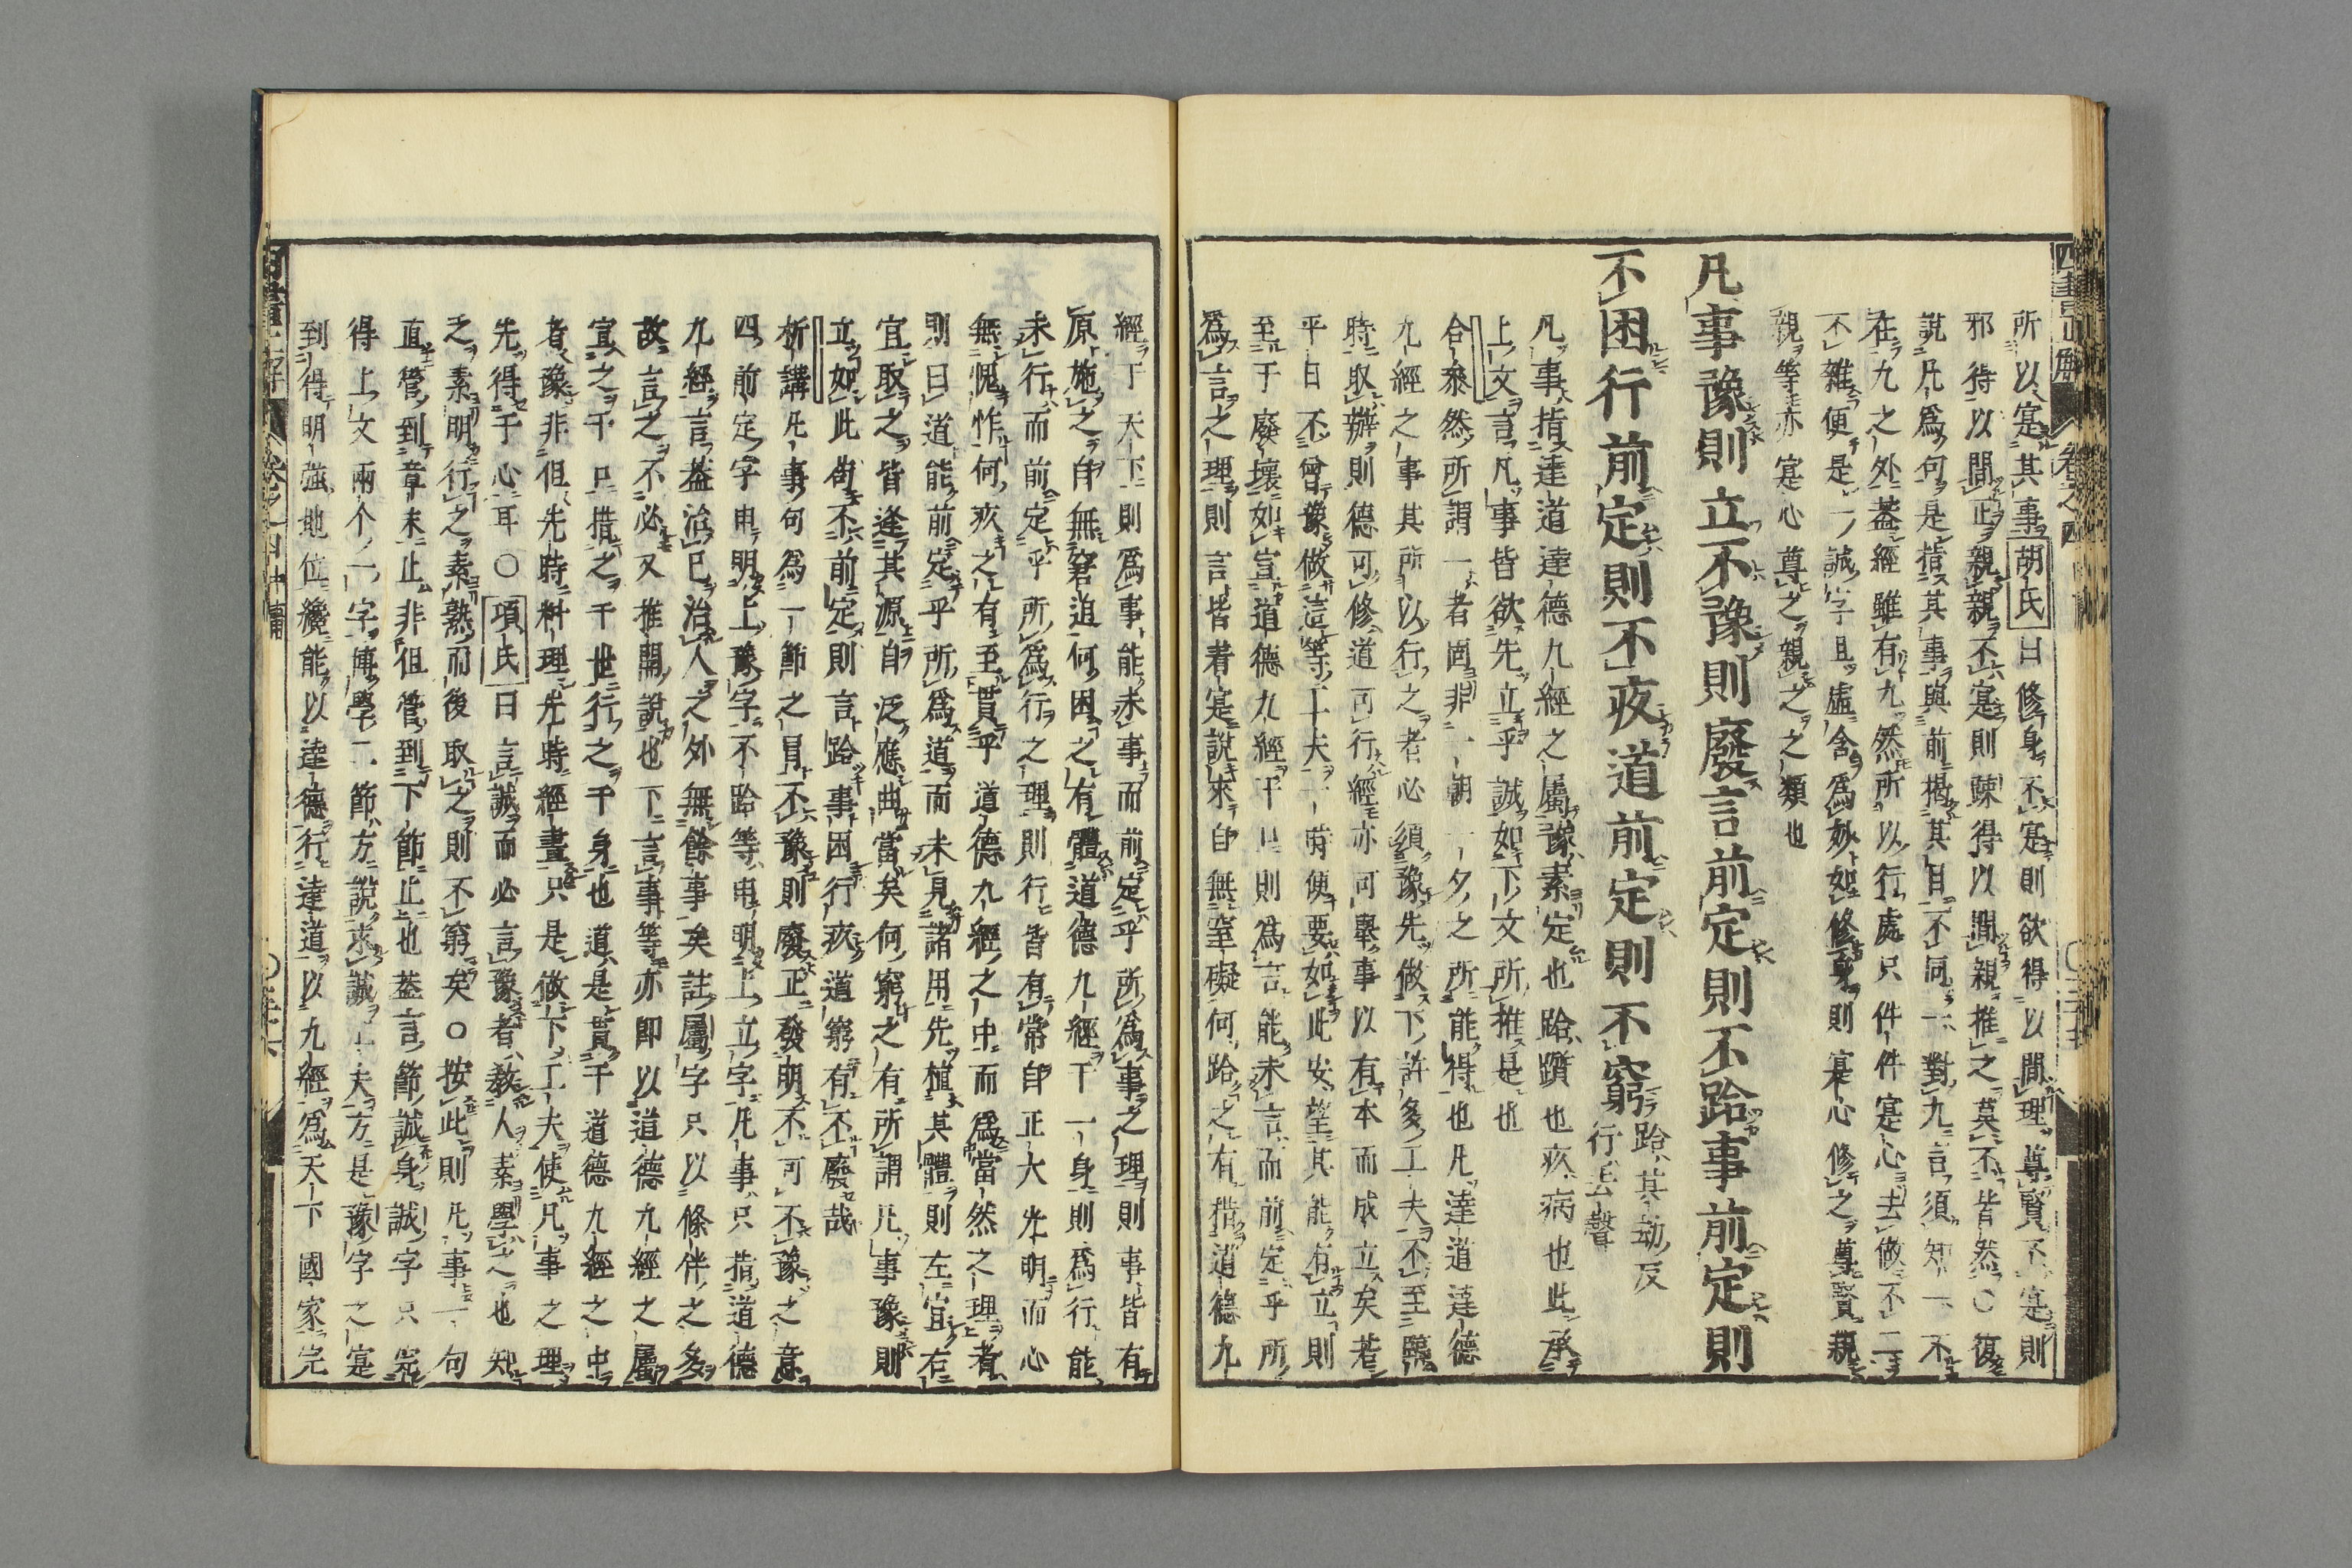 所以寔其事胡氏曰修身不寔則欲得以間理尊賢不寔則
邪得以間正親親不寔則踈得以間親推之莫不皆然○復
說凡爲何是指其事與前揭其目不同一對九言須知一不
在九之外蓋經雖有九然所以行處只件件寔心去做不二
不雜便是一誠字且虛含爲妙如修身則寔心修之尊賢親
親等亦寔心尊之親之之類也
凡事豫則立不豫則廢言前定則不跲事前定則
不困行前定則不疚道前定則不窮跲其劫反行去聲
凡事指達道達德九經之屬豫素定也跲躓也疚病也此承
上文言凡事皆欲先立乎誠如下文所推是也
合參然所謂一者固非一朝一夕之所能得也凡達道達德
九經之事其所以行之者必須豫先做下許多工夫不至臨
時取辦則德可修道可行經亦可舉事以有本而成立矣若
平日不曾豫做這等工夫一時便要如此安望其能有立則
至于廢壞如宣道德九經于口則爲言能未言而前定乎所
爲言之理則言皆著寔說來自無窒礙何跲之有措道德九
經于天下則爲事能未事而前定乎所爲事之理則事皆有
原施之自無窘迫何困之有體道德九經于一身則爲行能
未行而前定乎所爲行之理則行皆有常自正大光明而心
無愧怍何疚之有至貫乎道德九經之中而爲當然之理者
則曰道能前定乎所爲道而未見諸用先植其體則左宜右
宜取之皆逢其源自泛應曲當矣何窮之有所謂凡事豫則
立如此苟不前定則言跲事困行疚道窮有不廢哉
析講凡事句爲一節之冒不豫則廢正發明不可不豫之意
四前定字申明上豫字不跲等申明上立字凡事只指道德
九經言蓋治已治人之外無餘事矣註屬字只以條件之多
故言之不必又推開說也下言事等亦即以道德九經之屬
宣之于口措之于世行之于身也道是貫于道德九經之中
者豫非但先時料理先時經畫只是做下工夫使凡事之理
先得于心耳○項氏曰言誠而必言豫者教人素學之也知
之素明行之素熟而後取之則不窮矣○按此則凡事一句
直管到章末止非但管到下節止也蓋言節誠身誠字只完
得上文兩个一字博學二節方說求誠工夫方是豫字之寔
到得明強地位纔能以達德行達道以九經爲天下國家完